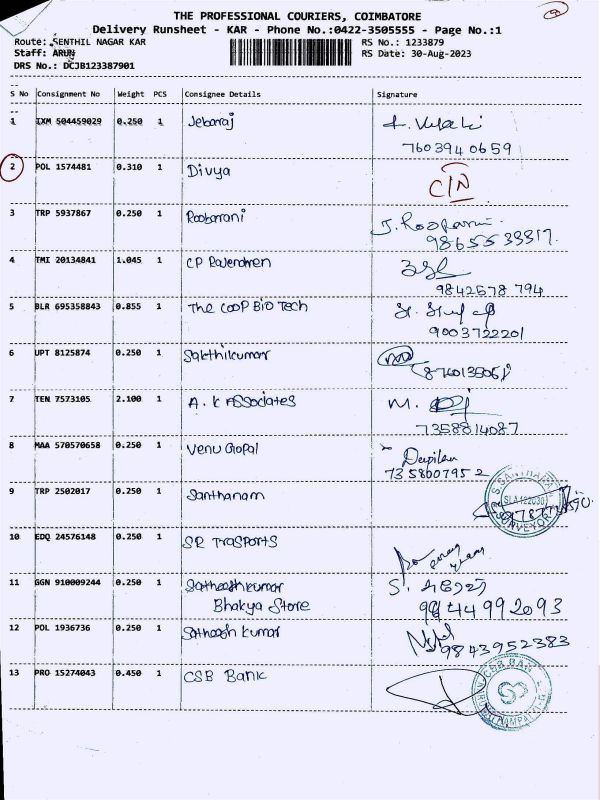 THE PROFESSIONAL COURIERS, COIMBATORE
Delivery Runsheet - KAR - Phone No.:0422-3505555 - Page No.:1
Route: SENTHIL NAGAR KAR RS No.: 1233879
Staff: ARUN RS Date: 30-Aug-2023
DRS No.: DCJB123387901
S No Consignment No Weight PCS Consignee Details Signature
1 IXM 504459029 0.250 1 Jebaraj
7603940659
2 POL 1574481 0.310 1 Divya C/N
3 TRP 5937867 0.250 1 Roobarani
4 TMI 20134841 1.045 1 CP Rajendren
9842578 794
5 BLR 695358843 0.855 1 The COOP BIO Tech
9003722201
6 UPT 8125874 0.250 1 Sakthikumar
7 TEN 7573105 2.100 1 A. K ASSociates M.
7358814087
8 MAA 570570658 0.250 1 Venu Gopal
735800795 2
9 TRP 2502017 0.250 1 Santhanam
SURVEYOR
10 EDQ 24576148 0.250 1 SR TraSPORTS
11 GGN 910009244 0.250 1 Satheeshkumar
Bhakya Store
9944992093
12 POL 1936736 0.250 1 Satheesh Kumar
9843952383
13 PRO 15274043 0.450 1 CSB Bank